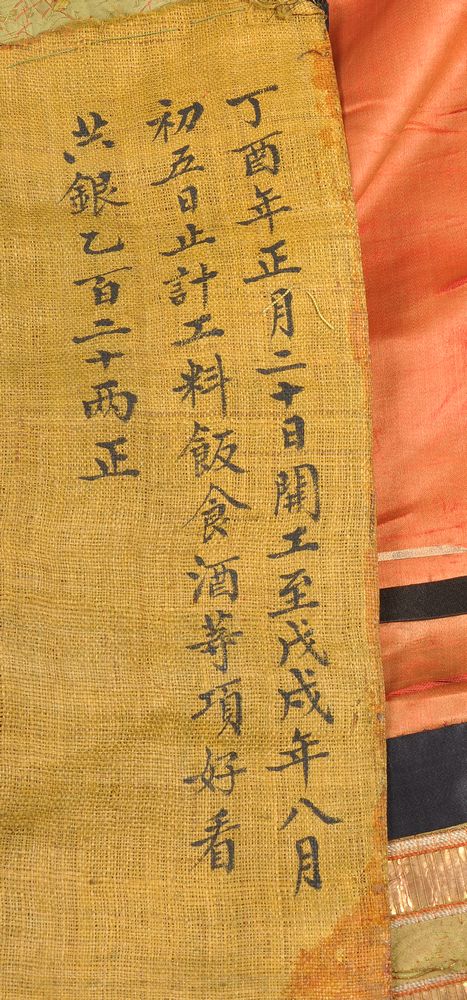 丁酉年正月二十日開工至戊戌年八月
初五日止計工料飯食酒等項好看
共銀乙百二十两正